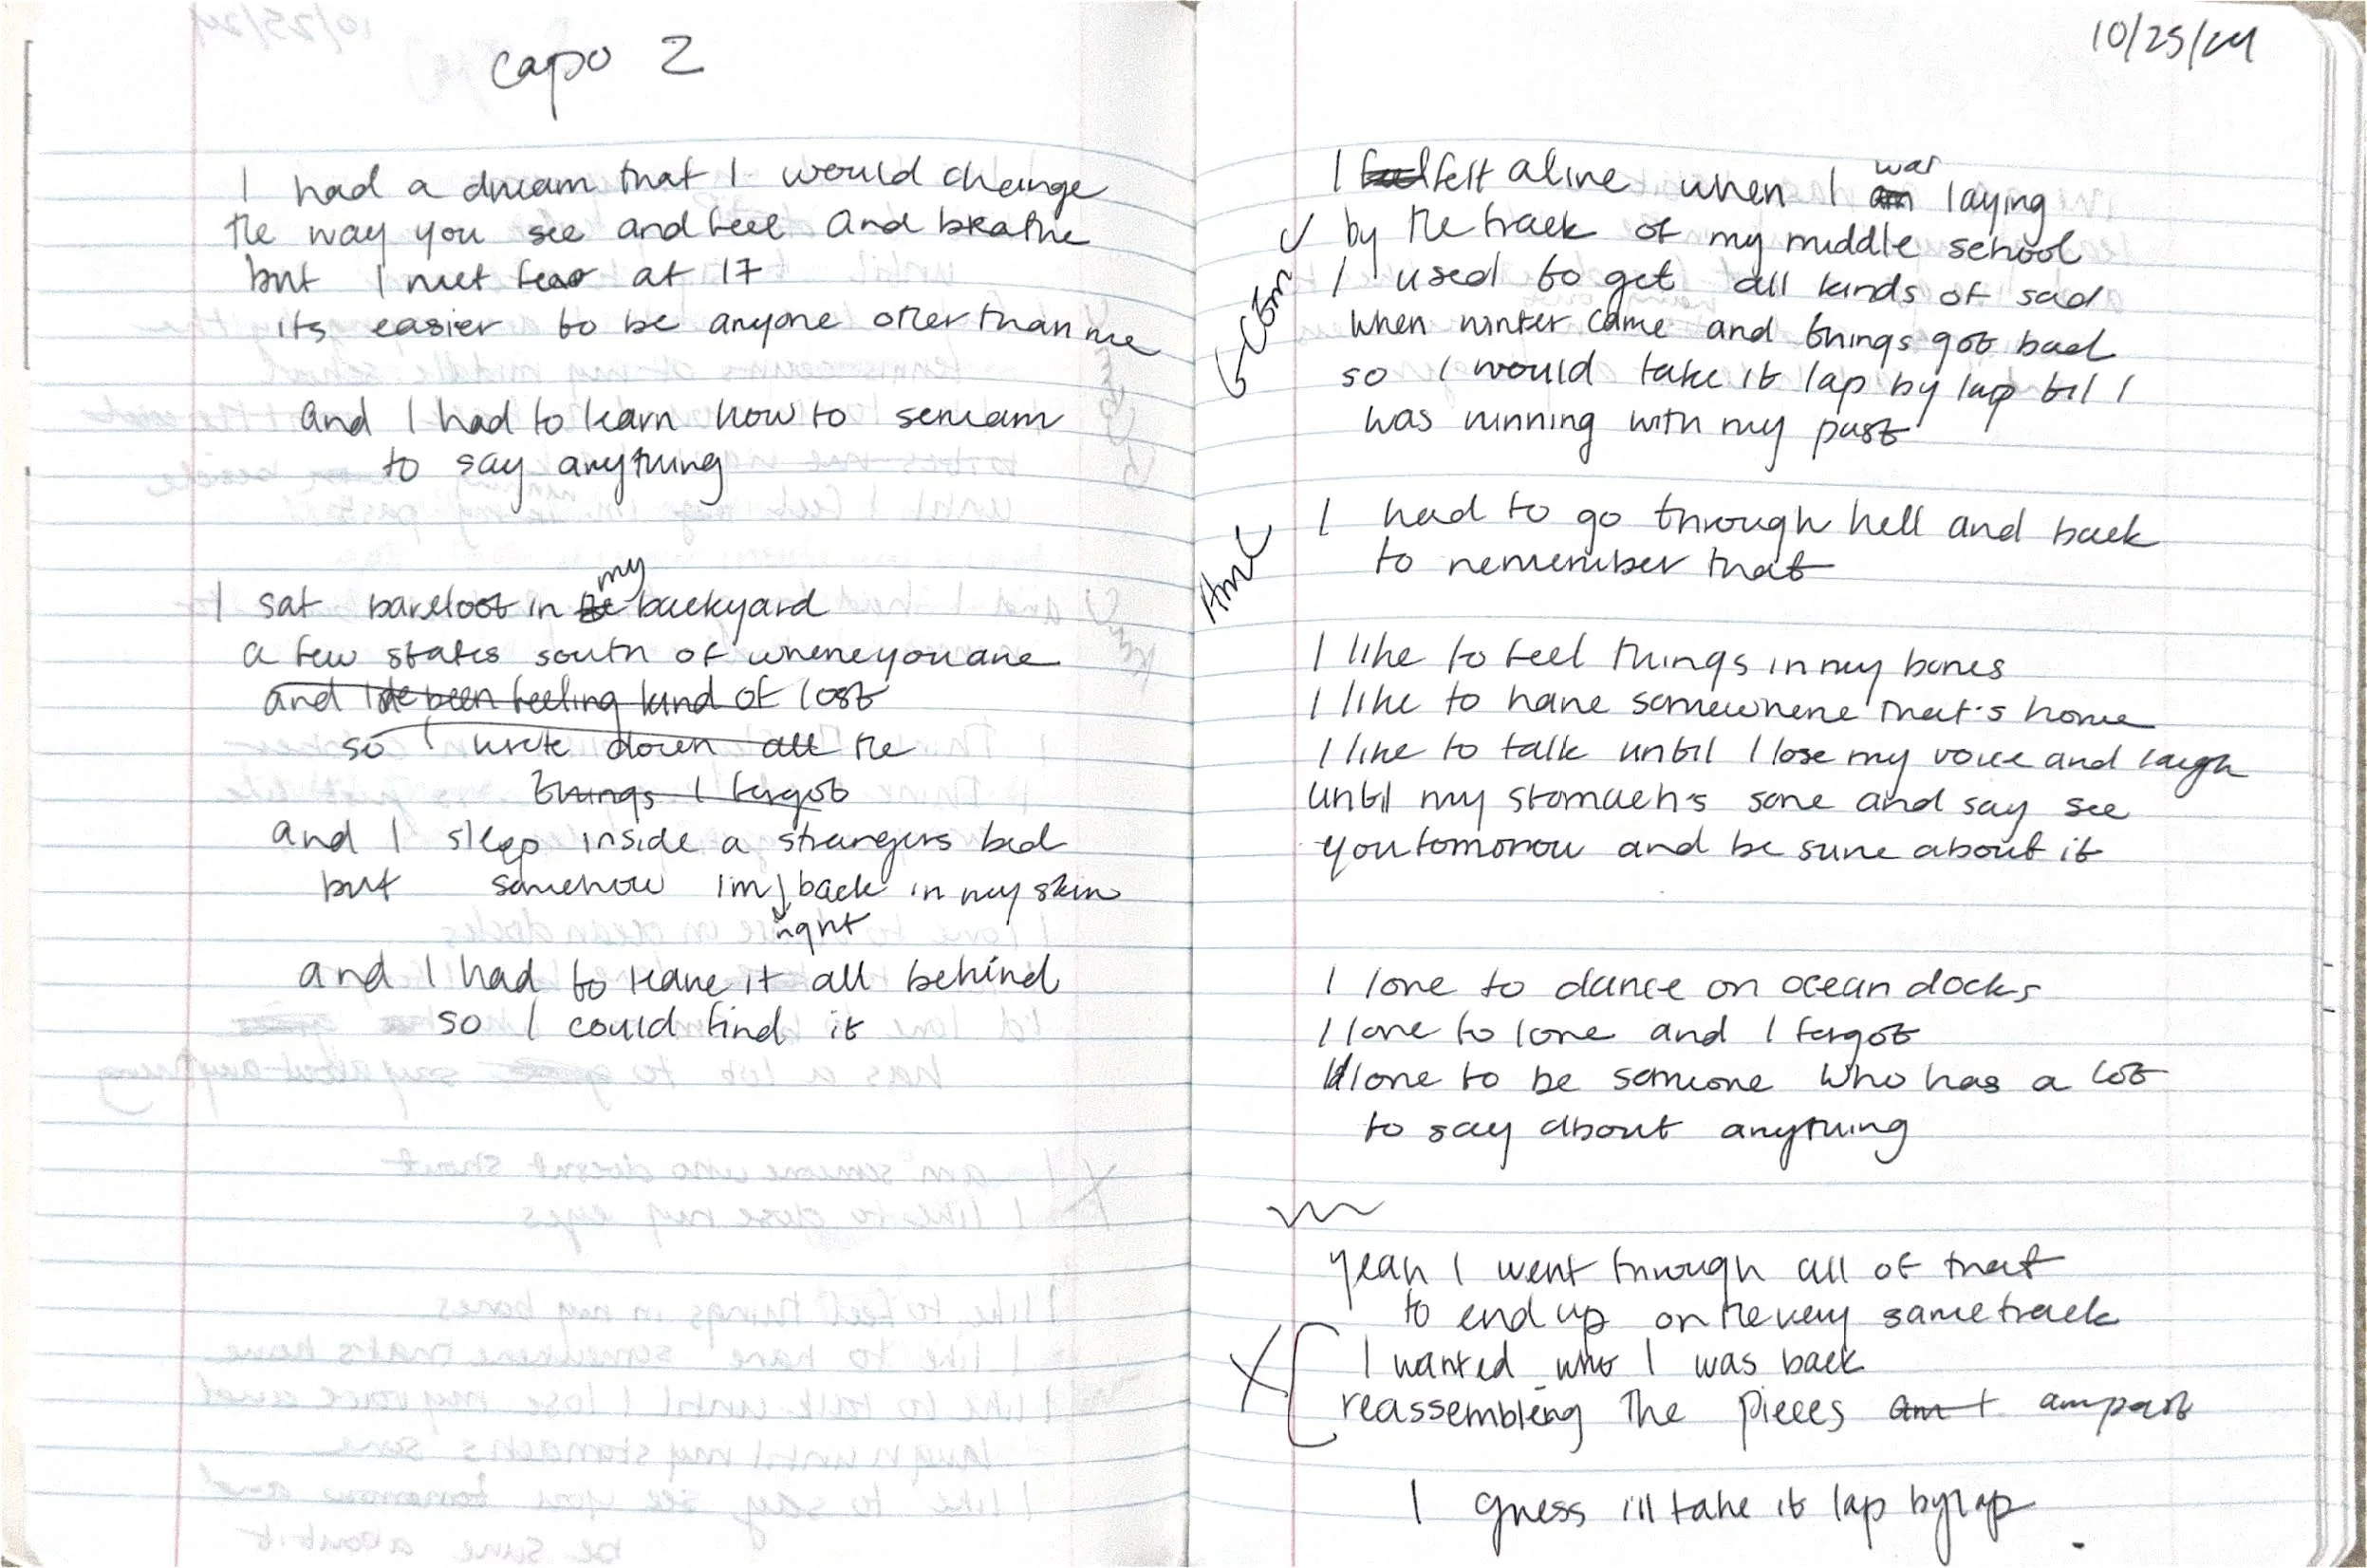 capo 2
I had a dream that I would change
the way you see and feel and breathe
but I met fear at 17
its easier to be anyone other than me
and I had to learn how to scream
to say anything
my
I sat barefoot in the backyard
a few states south of where you are
and I've been feeling kind of lost
so I wrote down all the
things I forgot
and I sleep inside a strangers bed
but somehow im back in my skin
right
and I had to leave it all behind
so I could find it
10/25/24
was
I feel felt alive when I am laying
by the track of my middle school
I used to get all kinds of sad
when winter came and things got bad
so I would take it lap by lap til I
was running with my past
G C Em C
I had to go through hell and back
to remember that
Am C
I like to feel things in my bones
I like to have somewhere that's home
I like to talk until I lose my voice and laugh
until my stomach's sore and say see
you tomorrow and be sure about it
I love to dance on ocean docks
I love to love and I forgot
I'd love to be someone who has a lot
to say about anything
yeah I went through all of that
to end up on the very same track
I wanted who I was back
reassembling the pieces am I am past
I guess i'll take it lap by lap